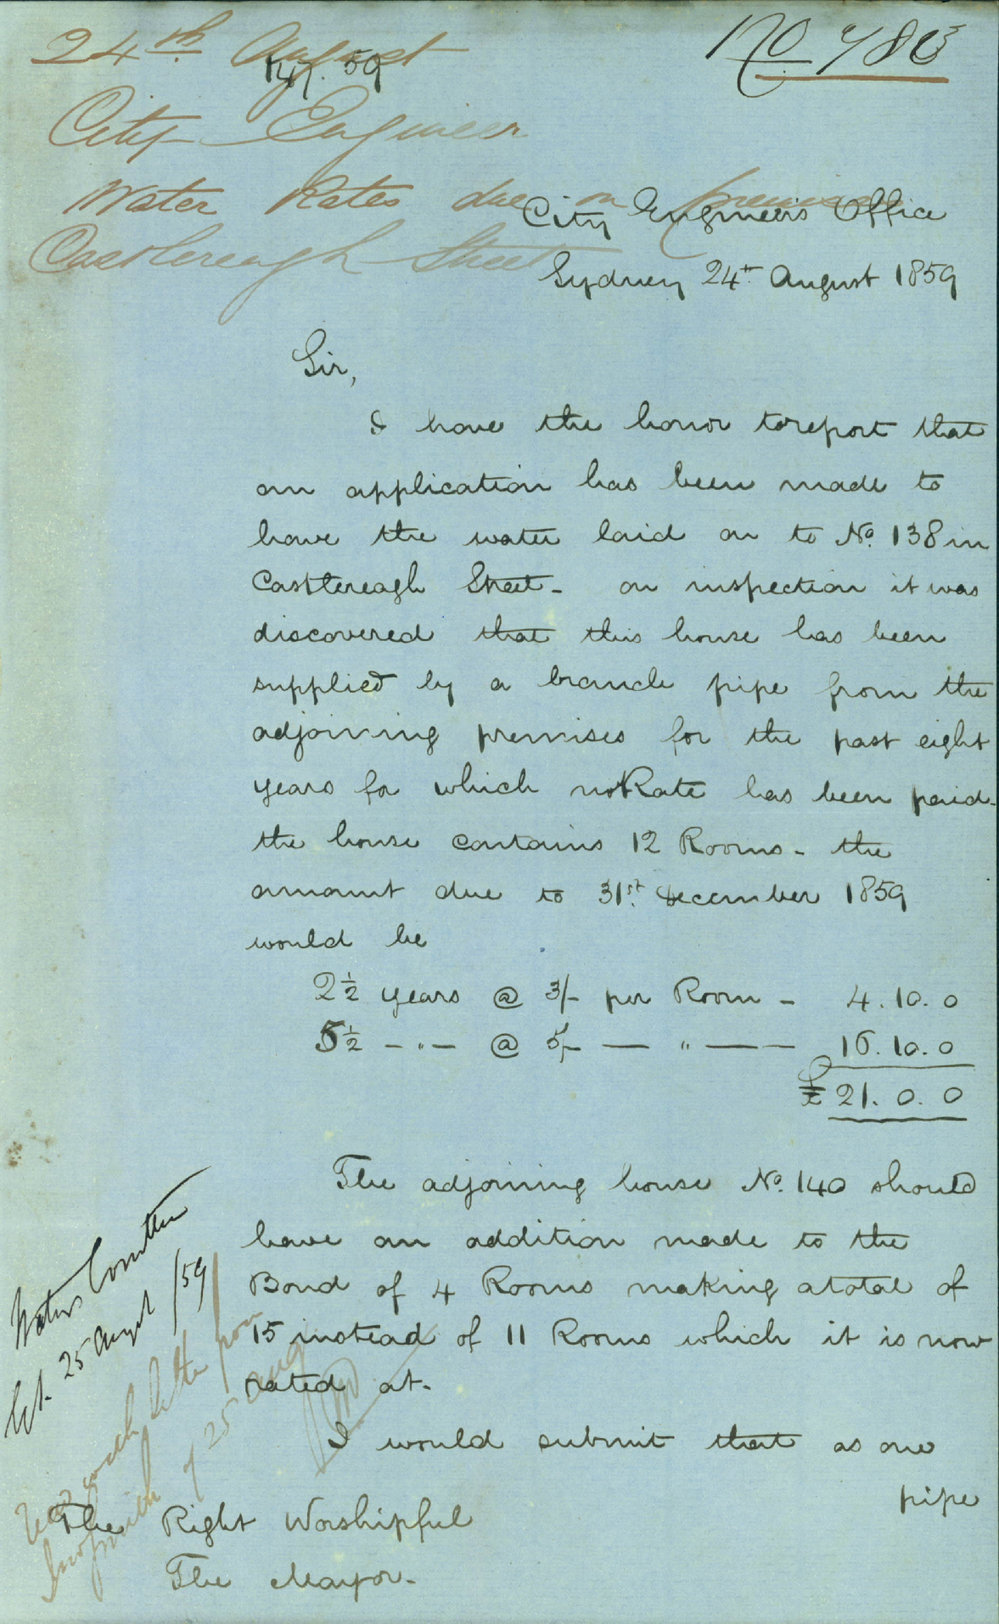 24th August
No 783
59
City Engineer
Water Rates due on premises
Castlereagh Street
City Engineers Office
Sydney 24th August 1859
Sir,
I have the honor to report that
an application has been made to
have the water laid on to No. 138 in
Castlereagh Street - on inspection it was
discovered that this house has been
supplied by a branch pipe from the
adjoining premises for the past eight
years for which no Rate has been paid -
the house contains 12 Rooms - the
amount due to 31st December 1859
would be
2½ years @ 3/- per Room - 4.10.0
5½ - " - @ 5/- — " — 16.10.0
£ 21.0.0
The adjoining house No. 140 should
have an addition made to the
Bond of 4 Rooms making a total of
15 instead of 11 Rooms which it is now
rated at -
I would submit that as one
pipe
Water Committee
25 August /59
letter from
of 25 Aug
The Right Worshipful
The Mayor -